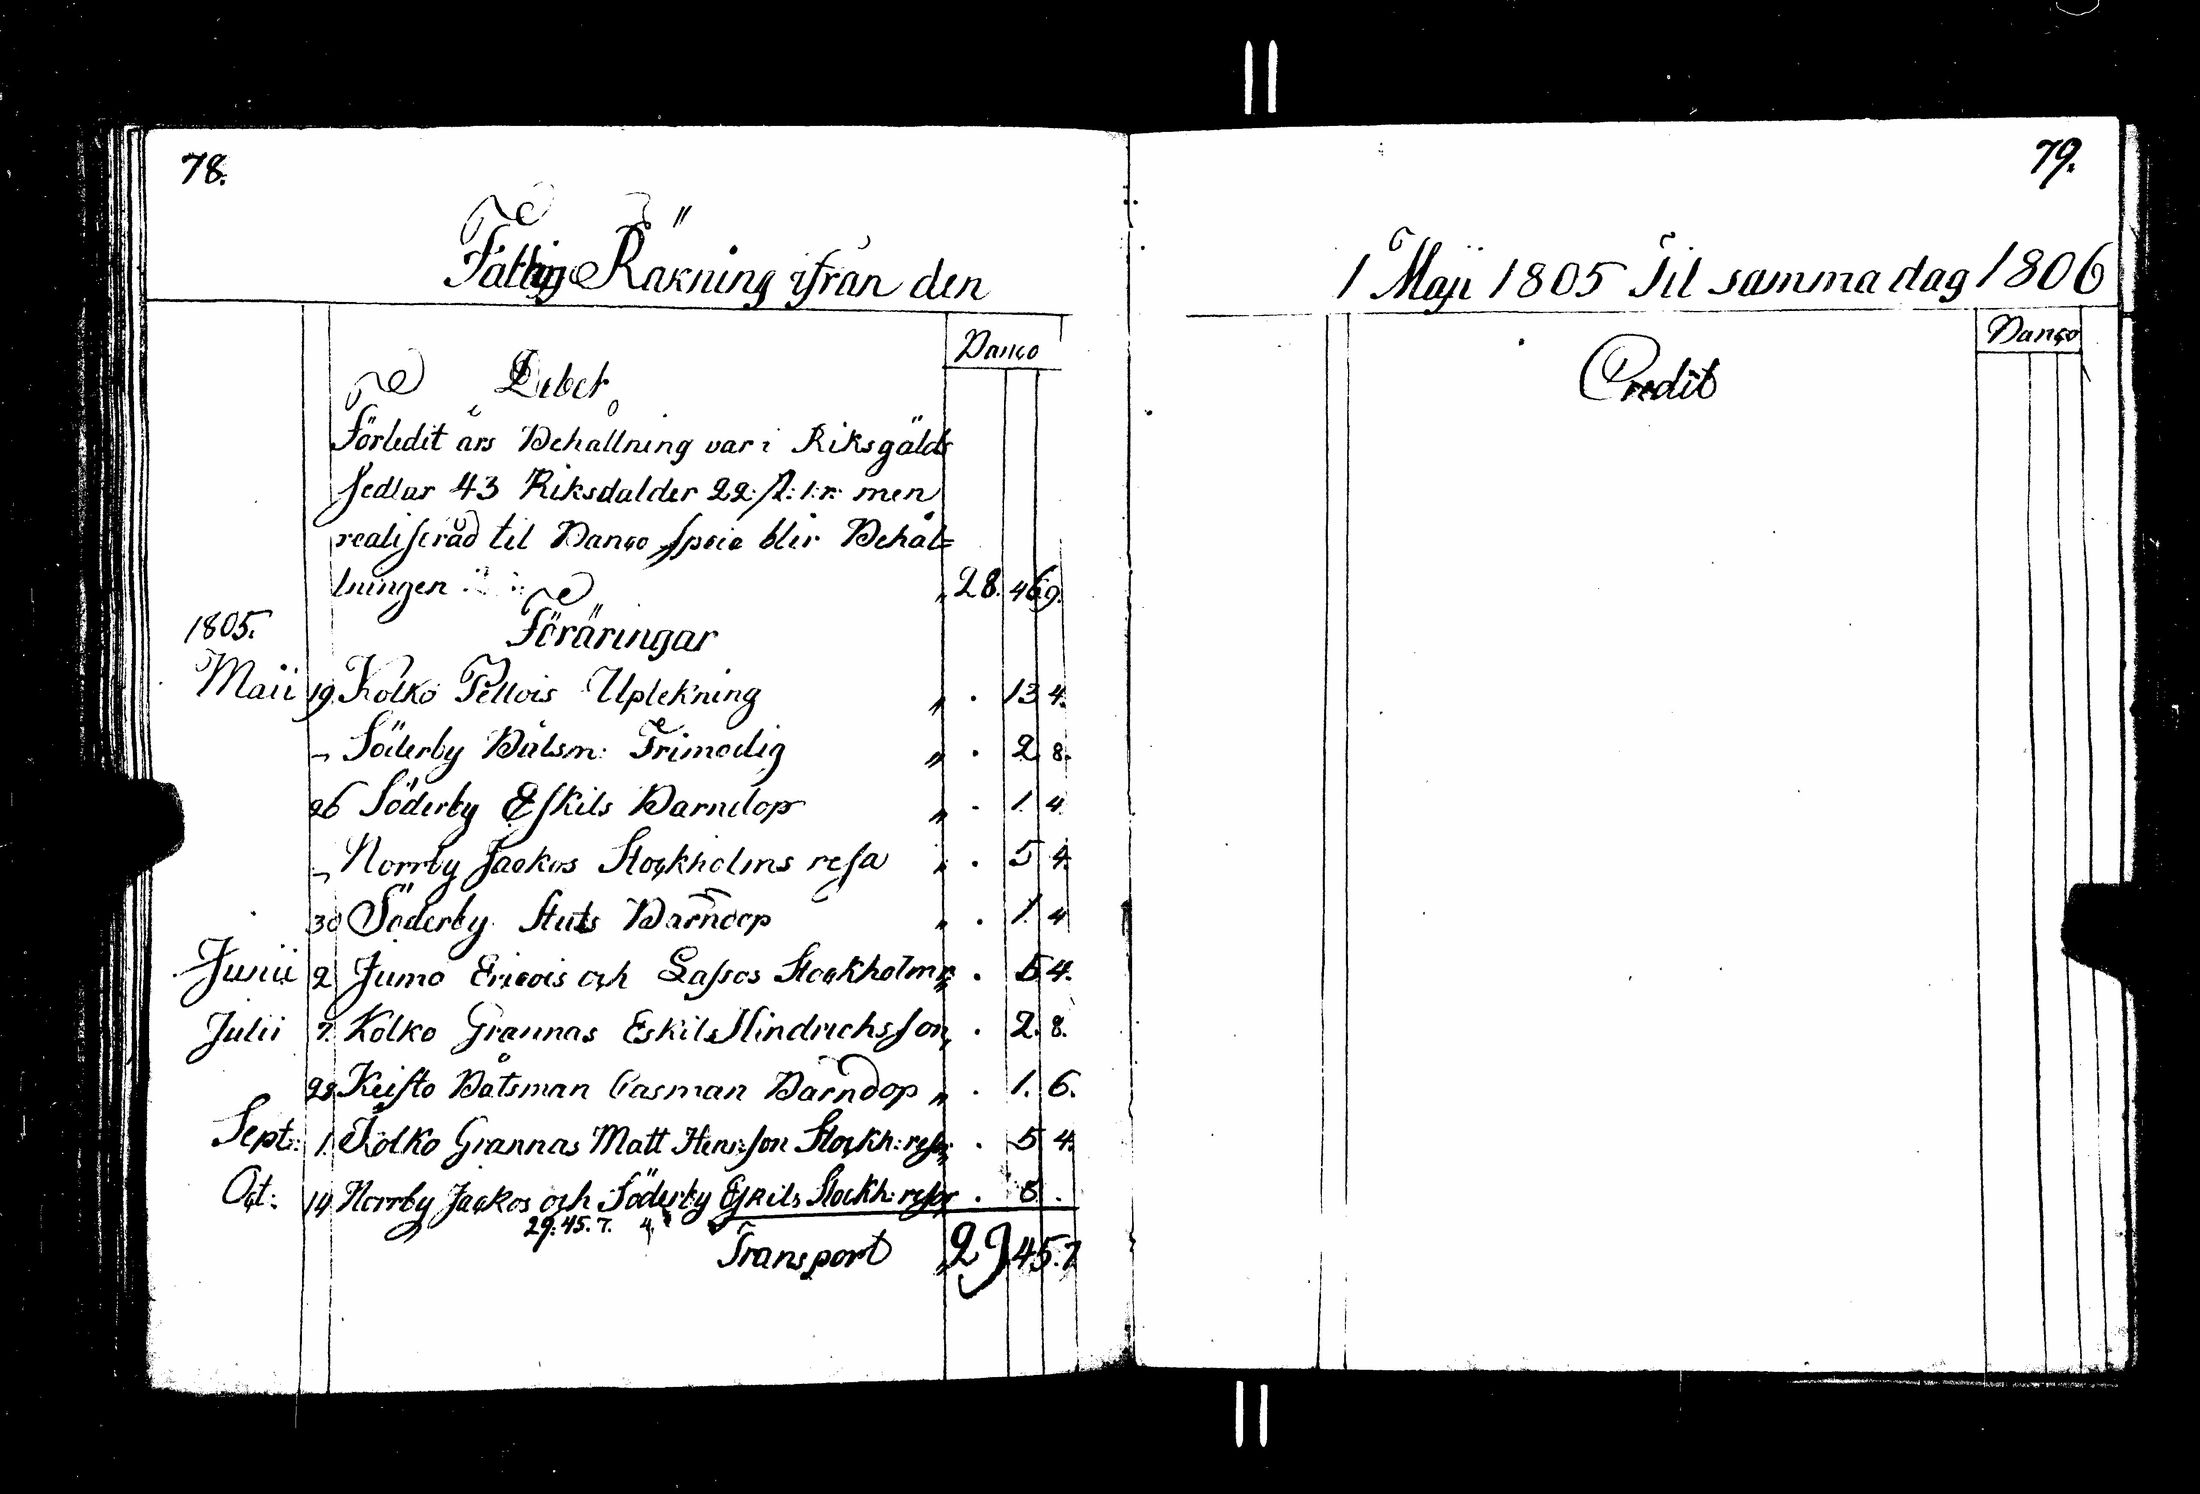 78.
Fattig Räkning ifrån den
Banco
Debet
Förledit års Behållning var i Riksgälds
sedlar 43 Riksdalder 22 s: 1 r: men
realiserad til Banco specie blir Behål=
lningen " 28. 46 9.
1805. Föräringar
Maii 19 Kolko Pellois Uplekning " . 13 4.
– Söderby Båtsm: Frimodig " . 2 8.
26 Söderby Eskils Barndop " . 1. 4
– Norrby Jackos Stockholms resa " . 5 4.
30 Söderby Stuts Barndop " . 1. 4
Junii 2 Jumo Ericois och Lassos Stockholm r. " . 5 4.
Julii 7. Kolko Grannas Eskils Hindrichsson " . 2. 8.
28 Keisto Båtsman Casman Barndop " . 1. 6.
Sept: 1. Kolko Grannas Matt Henr:son Stockh: resa " . 5 4.
Oct: 14 Norrby Jackos och Söderby Eskils Stockh: resor . 8 .
29. 45. 7.
Transport " 29 45. 7
79.
1 Maji 1805 Til samma dag 1806
Banco
Credit